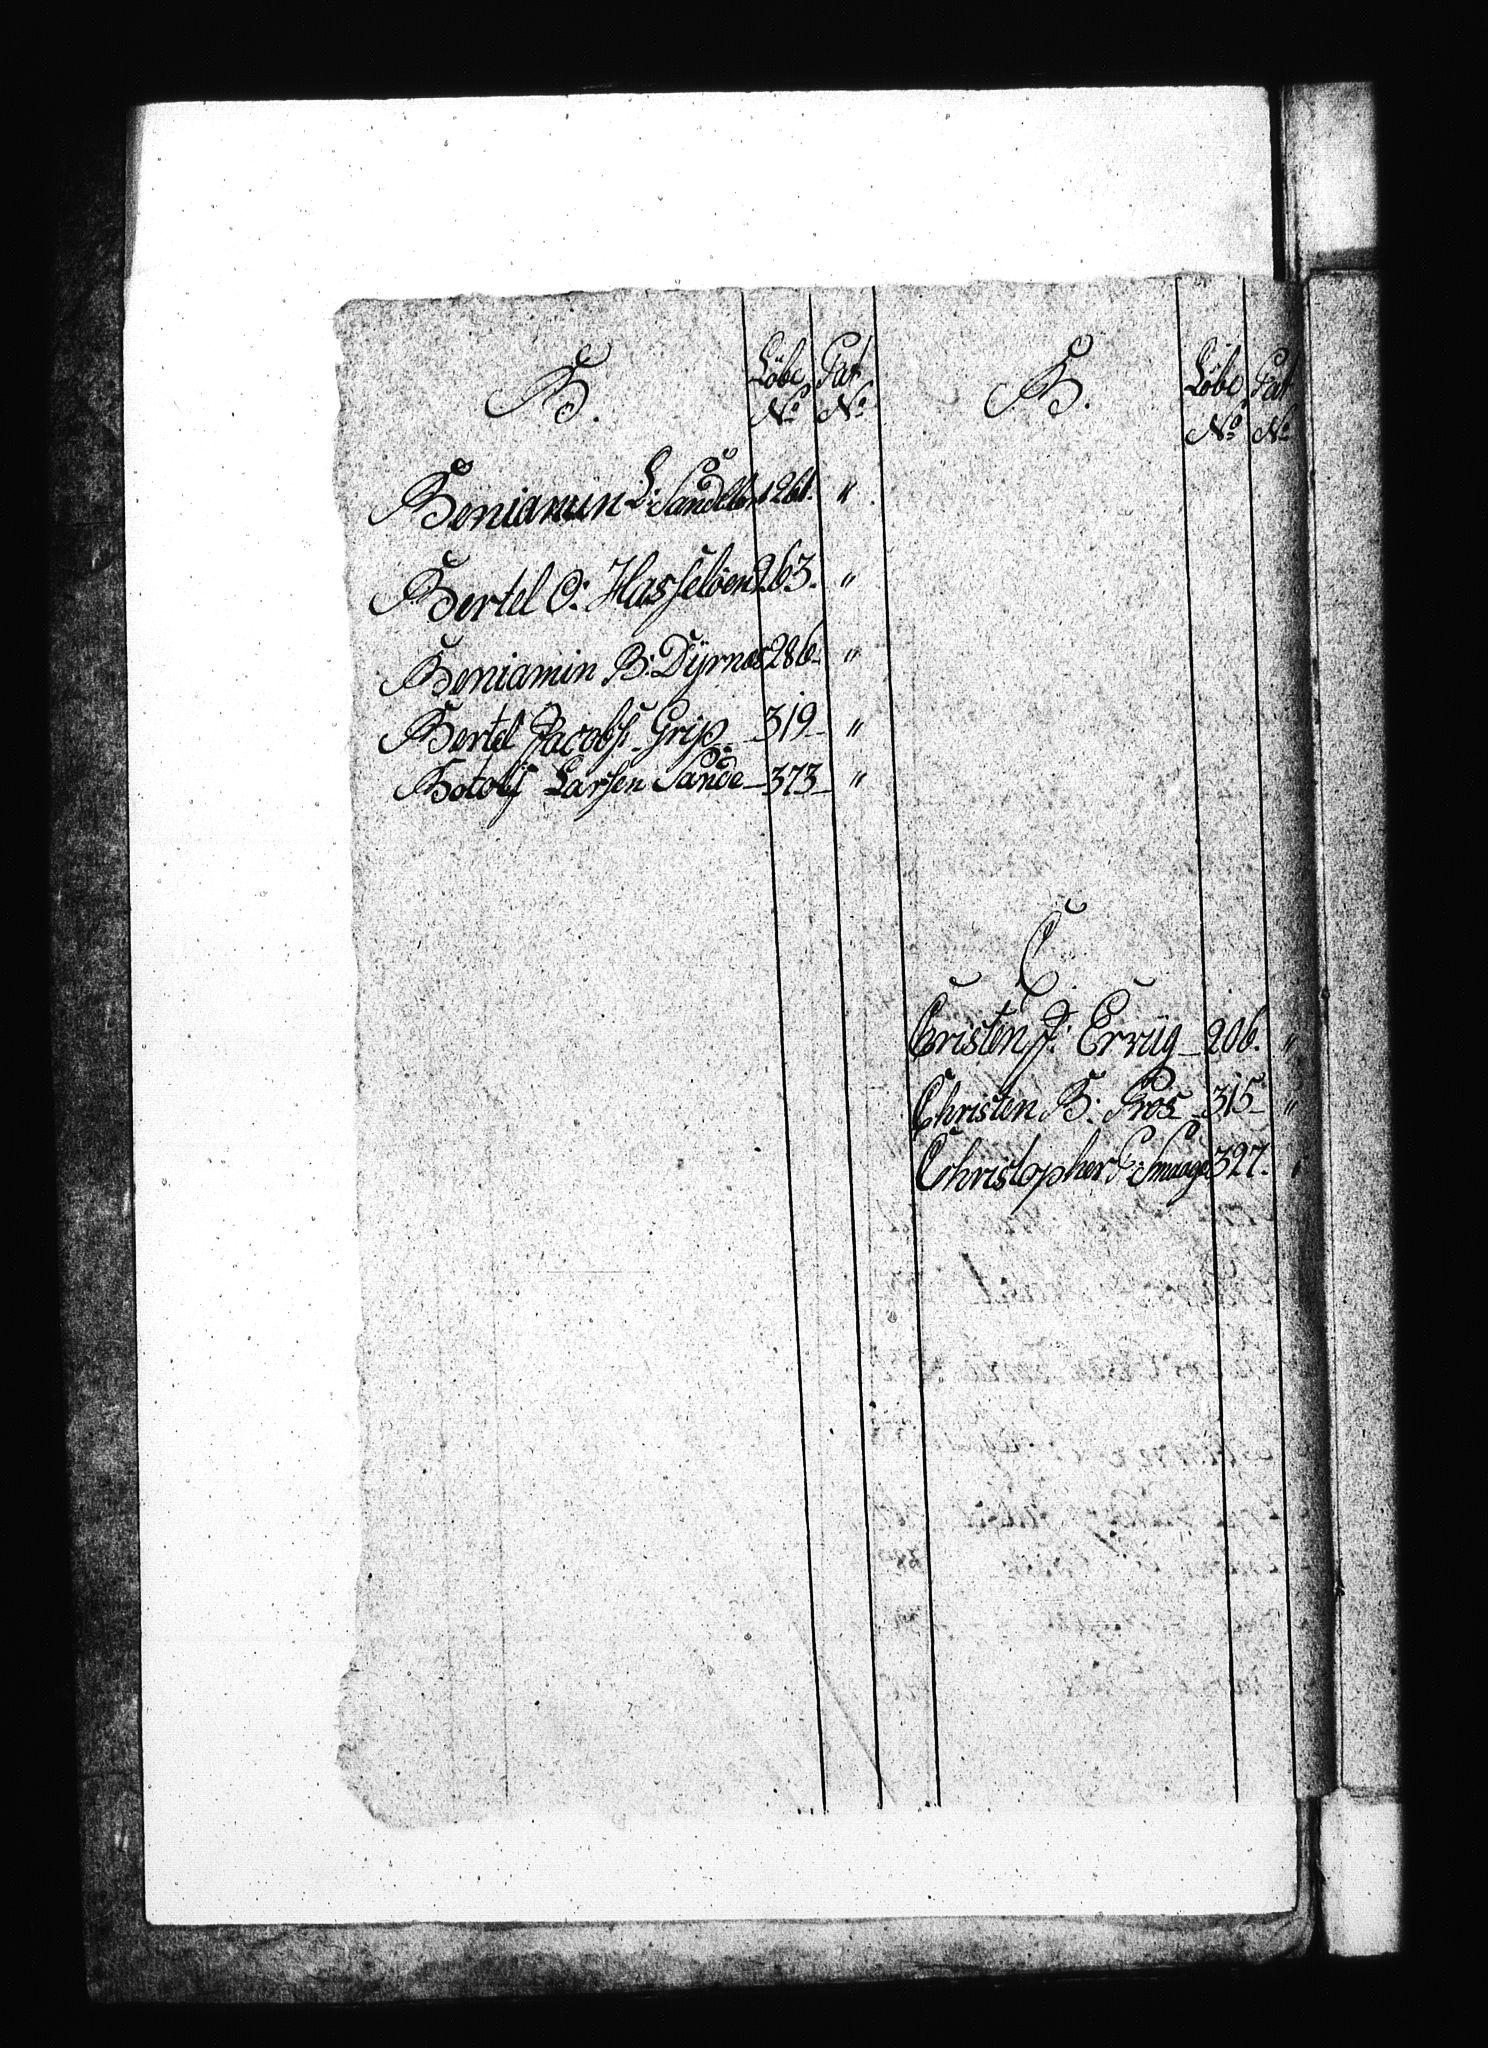 B.
Löbe Pat
No No
Beniamin L: 261. "
Bertel O: Hasselöen 263. "
Beniamin B: Dÿrnes 286. "
Bertel Jacobs: Grip 319 "
Botolf Larsen Sande 373 "
B.
Löbe Pat
No No
C.
Cristen J: 206. "
Christen B: 315 "
Christopher Smaage 327. "